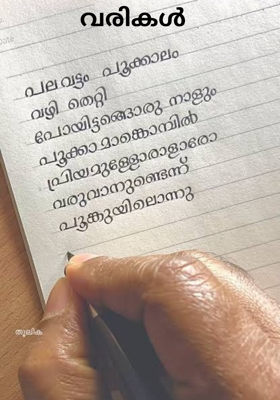 വരികൾ
Date
പലവട്ടം പൂക്കാലം
വഴി തെറ്റി
പോയിട്ടങ്ങൊരു നാളും
പൂക്കാ മാങ്കൊമ്പിൽ
പ്രിയമുള്ളോരാളാരോ
വരുവാനുണ്ടെന്ന്
പൂങ്കുയിലൊന്നു
തൂലിക